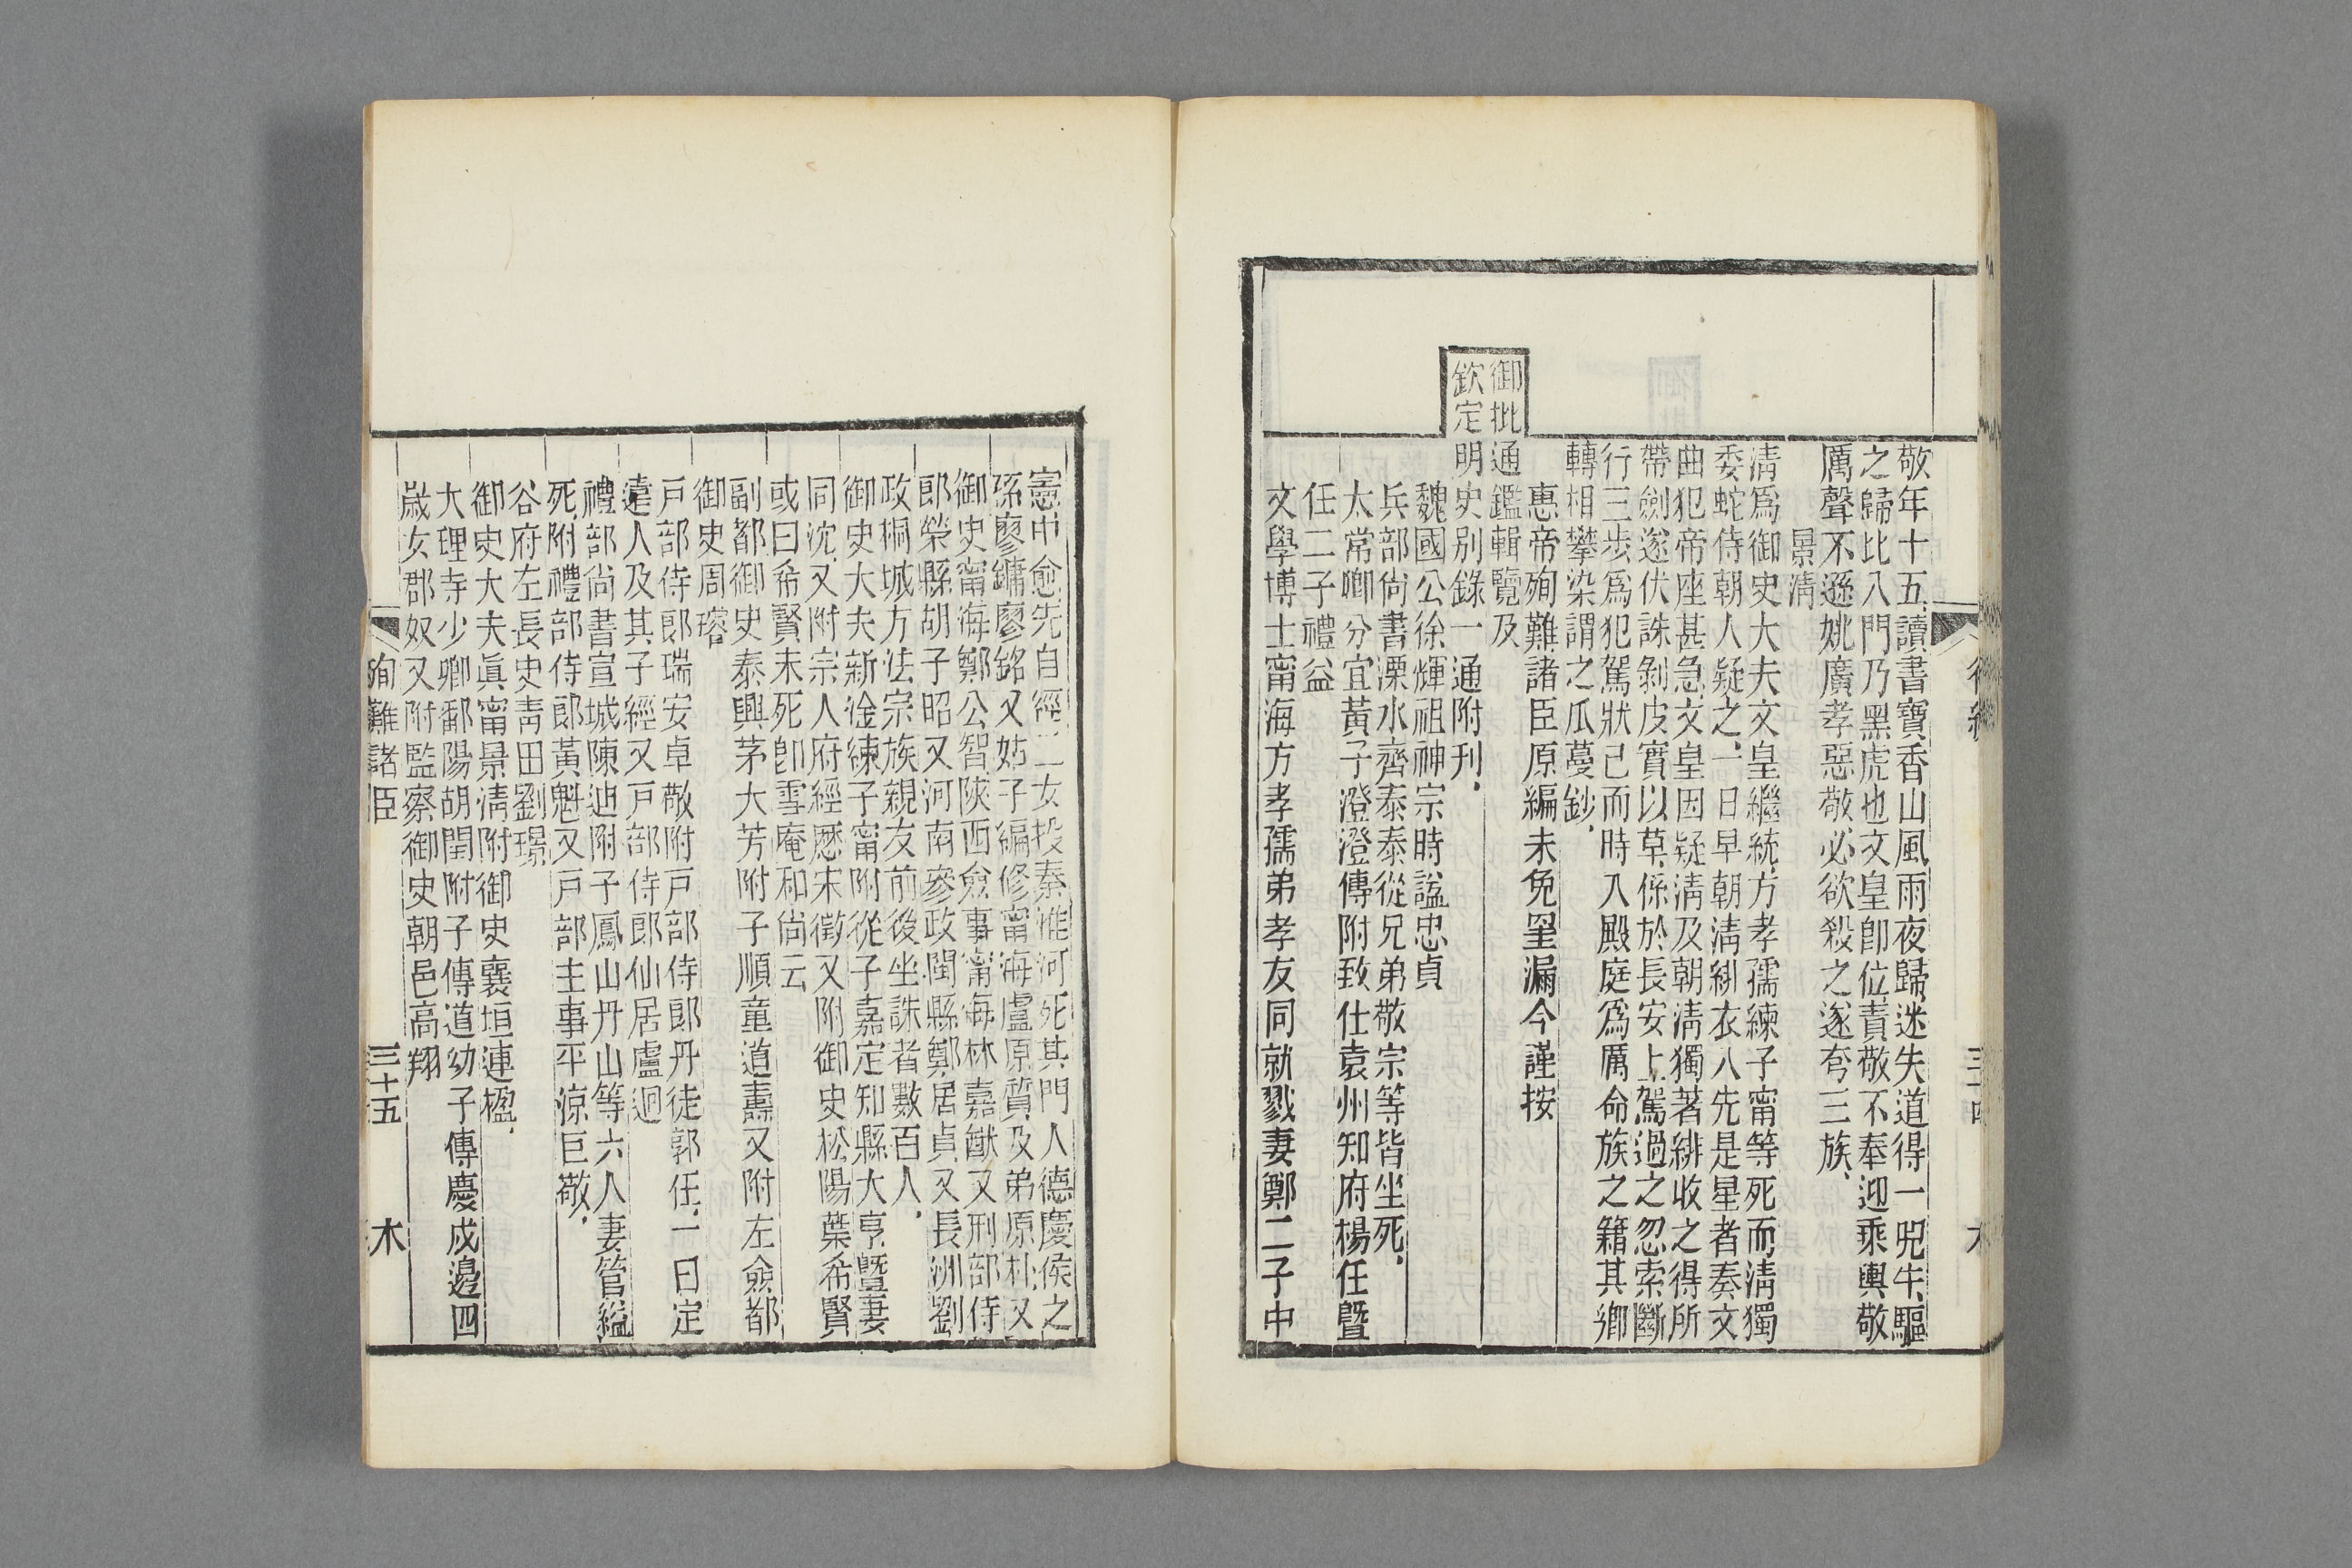 敬年十五、讀書寶香山風雨夜歸、迷失道得一兕牛、驅
之歸比八門乃黑虎也文皇卽位、責敬不奉迎乘輿敬
厲聲不遜姚廣孝惡敬、必欲殺之遂夸三族、
景清
清爲御史大夫文皇繼統、方孝孺練子甯等死而清獨
委蛇侍朝人疑之、一日早朝清緋衣入先是星者奏文
曲犯帝座甚急、文皇因疑清及朝清獨著緋收之得所
帶劍遂伏誅剝皮實以草、係於長安上駕過之忽索斷
行三步爲犯駕狀已而時入殿庭爲厲命族之籍其鄉
轉相攀染謂之瓜蔓鈔、
惠帝殉難諸臣原編未免罣漏今謹按
御批通鑑輯覽及
欽定明史别錄一通附刊、
魏國公徐輝祖神宗時諡忠貞
兵部尙書溧水齊泰泰從兄弟敬宗等皆坐死、
太常卿分宜黃子澄澄傳附致仕袁州知府楊任暨
任二子禮益
文學博士甯海方孝孺弟孝友同就戮妻鄭二子中
憲中愈先自經二女投秦淮河死其門人德慶侯之
孫廖鏞廖銘又姑子編修甯海盧原質及弟原朴又
御史甯海鄭公智陝西僉事甯海林嘉猷又刑部侍
郎榮縣胡子昭又河南參政閩縣鄭居貞又長洲劉
政桐城方法宗族親友前後坐誅者數百人、
御史大夫新淦練子甯附從子嘉定知縣大亨暨妻
同沈又附宗人府經厯宋徵又附御史松陽葉希賢
或曰希賢未死卽雪庵和尙云
副都御史泰興茅大芳附子順童道壽又附左僉都
御史周璿
戸部侍郎瑞安卓敬附戸部侍郎丹徒郭任、一曰定
遠人及其子經又戸部侍郎仙居盧迥
禮部尙書宣城陳迪附子鳳山丹山等六人妻管縊
死附禮部侍郎黃魁又戸部主事平涼巨敬、
谷府左長史青田劉璟
御史大夫眞甯景清附御史襄垣連楹、
大理寺少卿鄱陽胡閏附子傳道幼子傳慶戍邊四
歲女郡奴又附監察御史朝邑高翔
殉難諸臣 三十五 木